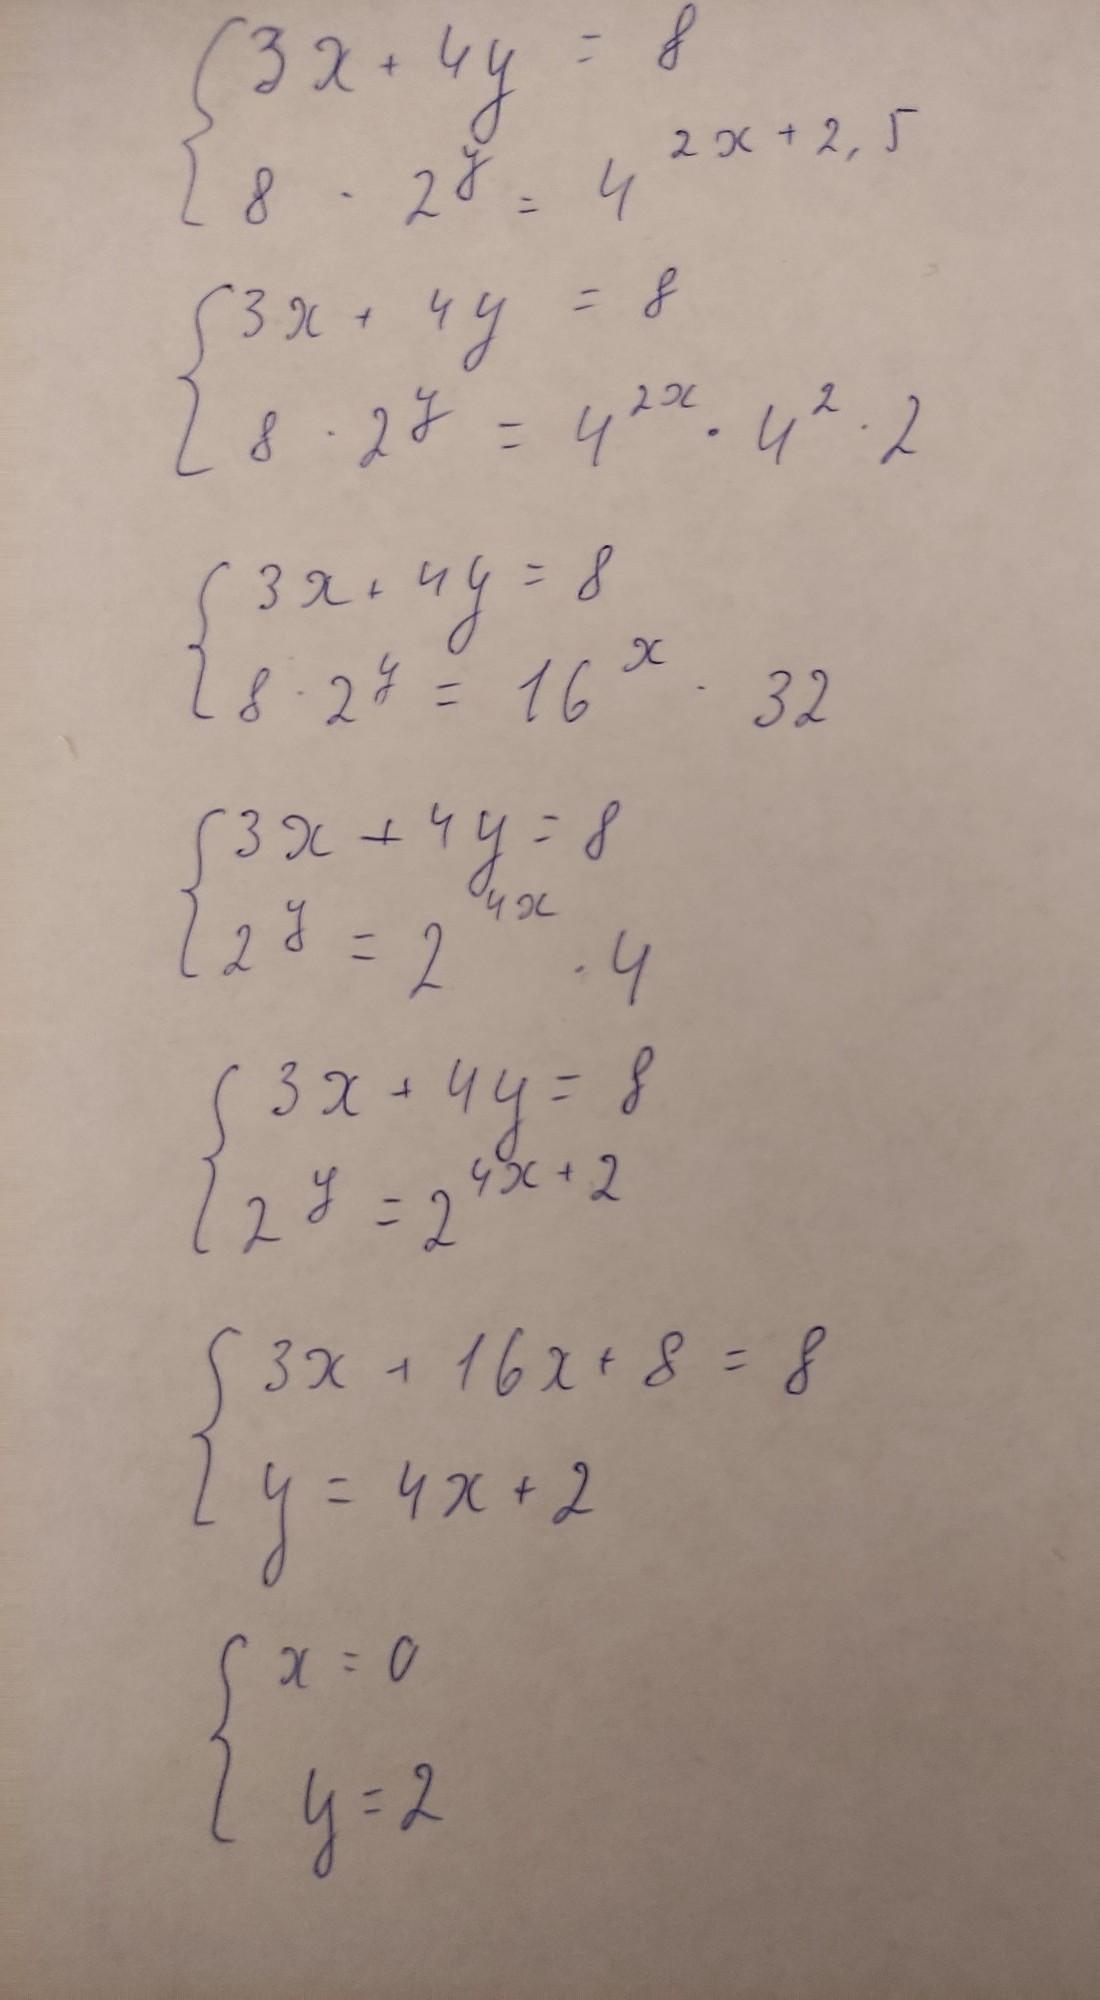 3x + 4y = 8
8 · 2^y = 4^{2x + 2,5}
3x + 4y = 8
8 · 2^y = 4^{2x} · 4^2 · 2
3x + 4y = 8
8 · 2^y = 16^x · 32
3x + 4y = 8
2^y = 2^{4x} · 4
3x + 4y = 8
2^y = 2^{4x + 2}
3x + 16x + 8 = 8
y = 4x + 2
x = 0
y = 2